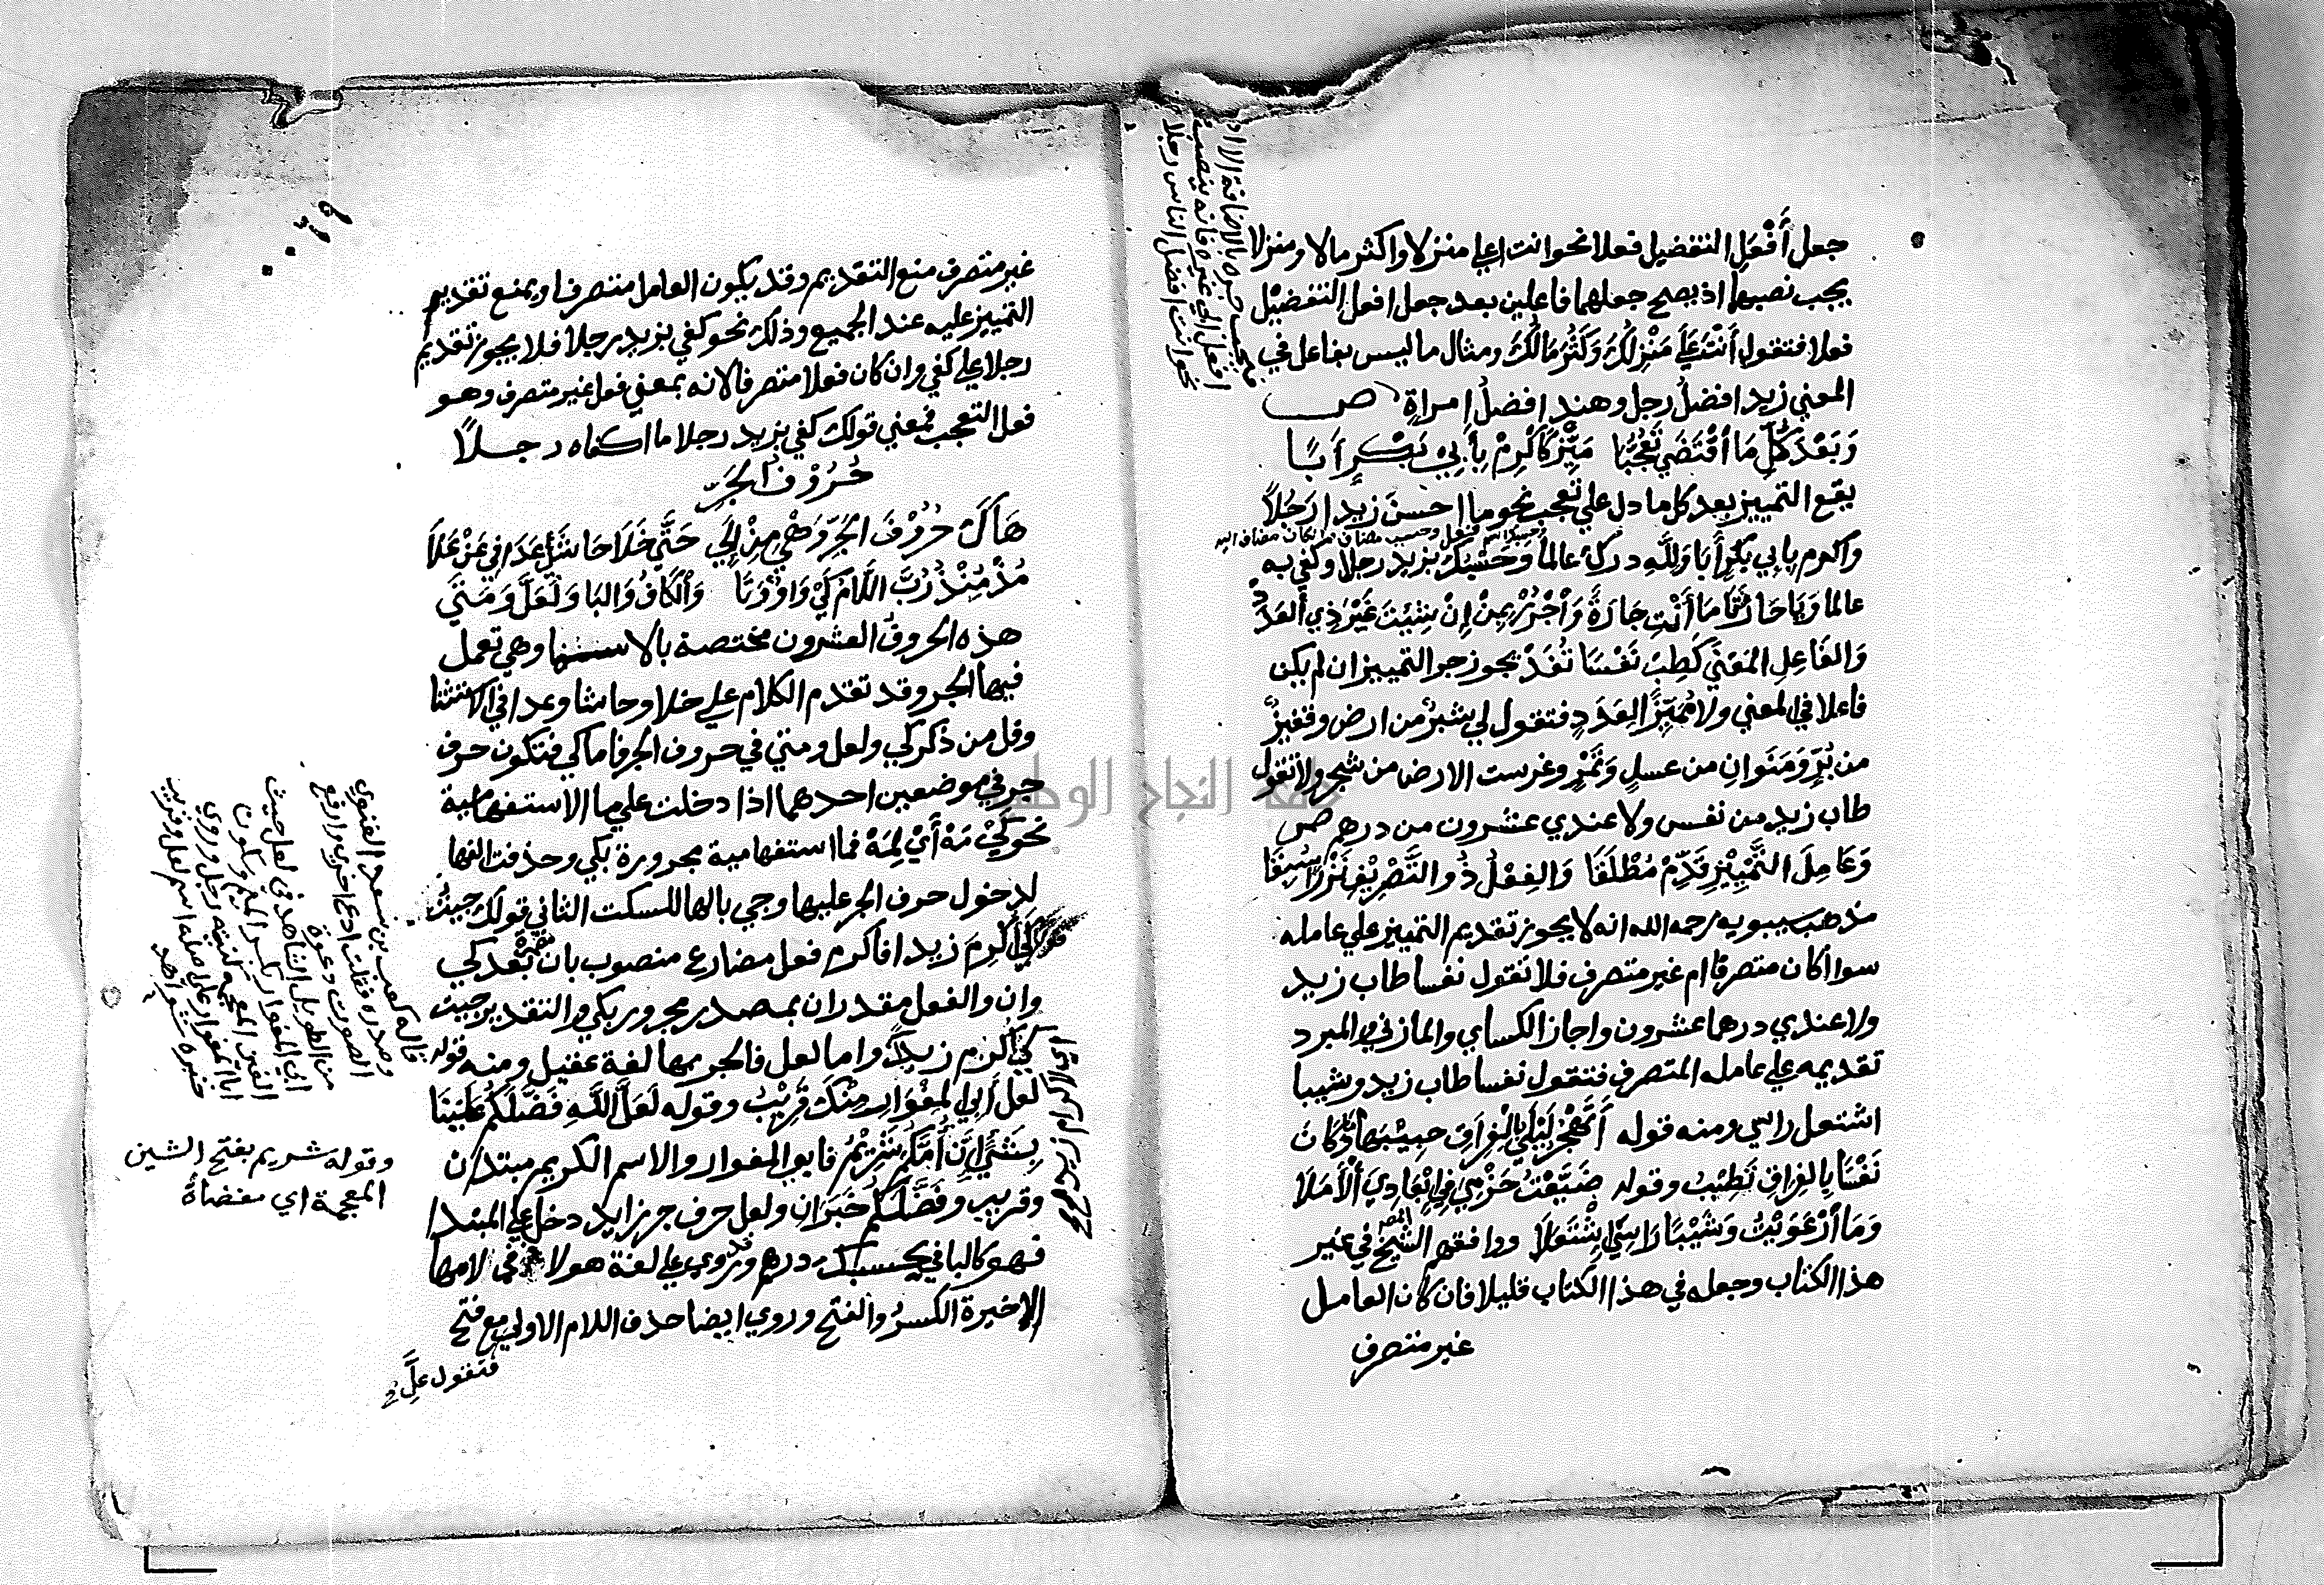 جعل أَفْعَلِ التفضيل فعلا نحو انت اعلي منزلا واكثر مالا ومنزلا
يجب نصبهما اذ يصح جعلهما فاعلين بعد جعل افعل التفضيل
فعلا فتقول أَنْتَ عَلَى مَنْزِلُكَ وَكَثُرَ مَالُكَ ومثال ما ليس بفاعل في
المعني زيد افضل رجل وهند افضل امراة ص
وَبَعْدَ كُلِّ مَا اقْتَضَي تَعَجُّبَا مَيِّزْ كَأَكْرِمْ بِأَبِي بَكْرٍ أَبًا
يقع التمييز بعد كل ما دل علي تعجب نحو ما احسن زيدا رَجُلاً
واكرم بابي بكر أَبًا وَلِلَّهِ درك عالما وَحَسْبُكَ بزيد رجلا وكفي به
عالما وَيَا جَارَتَا مَا أَنْتِ جَارَةً وَاجْرُرْ بِمِنْ إِنْ شِئْتَ غَيْرَ ذِي العَدَدِ
وَالفَاعِلِ المَعْنَي كَطِبْ نَفْسًا تُفَدْ يجوز جر التمييز ان لم يكن
فاعلا في المعني ولا مُمَيِّزًا لِعَدَدٍ فتقول لي شبر من ارض وقفيز
من بُرٍّ وَمَنَوانِ من عسل وَتَمْرٍ وغرست الارض من شجر ولا تقول
طاب زيد من نفس ولا عندي عشرون من درهم ص
وَعَامِلَ التَّمْيِيزِ قَدِّمْ مُطْلَقَا وَالفِعْلُ ذُو التَّصْرِيفِ نَزْرًا سُبِقَا
مذهب سيبويه رحمه الله انه لا يجوز تقديم التمييز علي عامله
سوا اكان متصرفا ام غير متصرف فلا تقول نفسا طاب زيد
ولا عندي درهما عشرون واجاز الكساي والمازني والمبرد
تقديمه علي عامله المتصرف فتقول نفسا طاب زيد وشيبا
اشتعل راسي ومنه قوله أَتَهْجُرُ لَيْلَي بِالفِرَاقِ حبيبها وَمَا كَانَ
نَفْسًا بِالفِرَاقِ تَطِيْبُ وقوله ضَيَّعْتُ حَزْمِي فِي إِبْعَادِيَ الأَمَلاَ
وَمَا ارْعَوَيْتُ وَشَيْبًا رَاسِيَ اشْتَعَلاَ ووافقهم الشيخ المص في غير
هذا الكتاب وجعله في هذا الكتاب قليلا فان كان العامل
غير متصرف
غير متصرف منع التقديم وقد يكون العامل متصرفا ويمنع تقديم
التمييز عليه عند الجميع وذلك نحو كفي بزيد رجلا فلا يجوز تقديم
رجلا علي كفي وان كان فعلا متصرفا لانه بمعني فعل غير متصرف وهو
فعل التعجب فمعني قولك كفي بزيد رجلا ما اكفاه رجلاً
حُرُوْفُ الجَرِّ
هَاكَ حُرُوْفَ الجَرِّ وَهْيَ مِنْ إِلَي حَتَّي خَلاَ حَاشَا عَدَا فِي عَنْ عَلَي
مُذْ مُنْذُ رُبَّ اللَّامُ كَيْ وَاوٌ وَتَا وَالكَافُ وَالبَا وَلَعَلَّ وَمَتَي
هذه الحروف العشرون مختصة بالاسما وهي تعمل
فيها الجر وقد تقدم الكلام علي خلا وحاشا وعدا في الاستثنا
وقل من ذكر كي ولعل ومتي في حروف الجر فاما كي فتكون حرف
جر في موضعين احدهما اذا دخلت علي ما الاستفهامية
نحو كَيْ مَهْ أَيْ لِمَهْ فما استفهامية مجرورة بكي وحذفت الفها
لدخول حرف الجر عليها وجي بالها للسكت الثاني قولك جيت
كَي أُكْرِمَ زيدا فاكرم فعل مضارع منصوب بان مضمرة بَعْدَ كي
وان والفعل مقدران بمصدر مجرور بكي والتقدير جيت
كي اكرام زيد واما لعل فالجر بها لغة عقيل ومنه قوله
لعل أَبِي المِغْوَارِ مِنْكَ قَرِيْبُ وقوله لَعَلَّ اللَّهِ فَضَّلَكُمْ عَلَيْنَا
بِشَيْءٍ أَنَّ أُمَّكُمُ شَرِيْمُ فابو المغوار والاسم الكريم مبتدان
وقريب وفَضَّلَكُمْ خَبَرَانِ ولعل حرف جر زايد دخل علي المبتدا
فهو كالبا في بحسبك درهم وقد روي علي لغة هولا في لامها
الاخيرة الكسرُ والفتح وروي ايضا حذف اللام الاولي مع فتح
فتقول عَلَّ
قاله كعب بن سعد الغنوي
وصدره فقلت ادع اخري وارفع
الصوت دعوة
من الطويل الشاهد في لعل حيث
ابي المغوار بكسر الميم وسكون
الغين المعجمة كنية رجل وروي
ابا المغوار علي صله اسم لعل وقريب
خبره
وقوله شريم بفتح الشين
المعجمة اي مفضاة